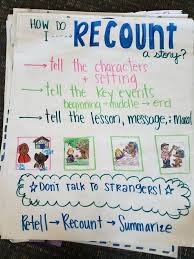 HOW DO I RECOUNT
a story?
→ tell the characters
+ setting
→ tell the key events
beginning → middle → end
→ tell the lesson, message, moral
☆ Don't Talk to Strangers! ☆
Retell → Recount → Summarize